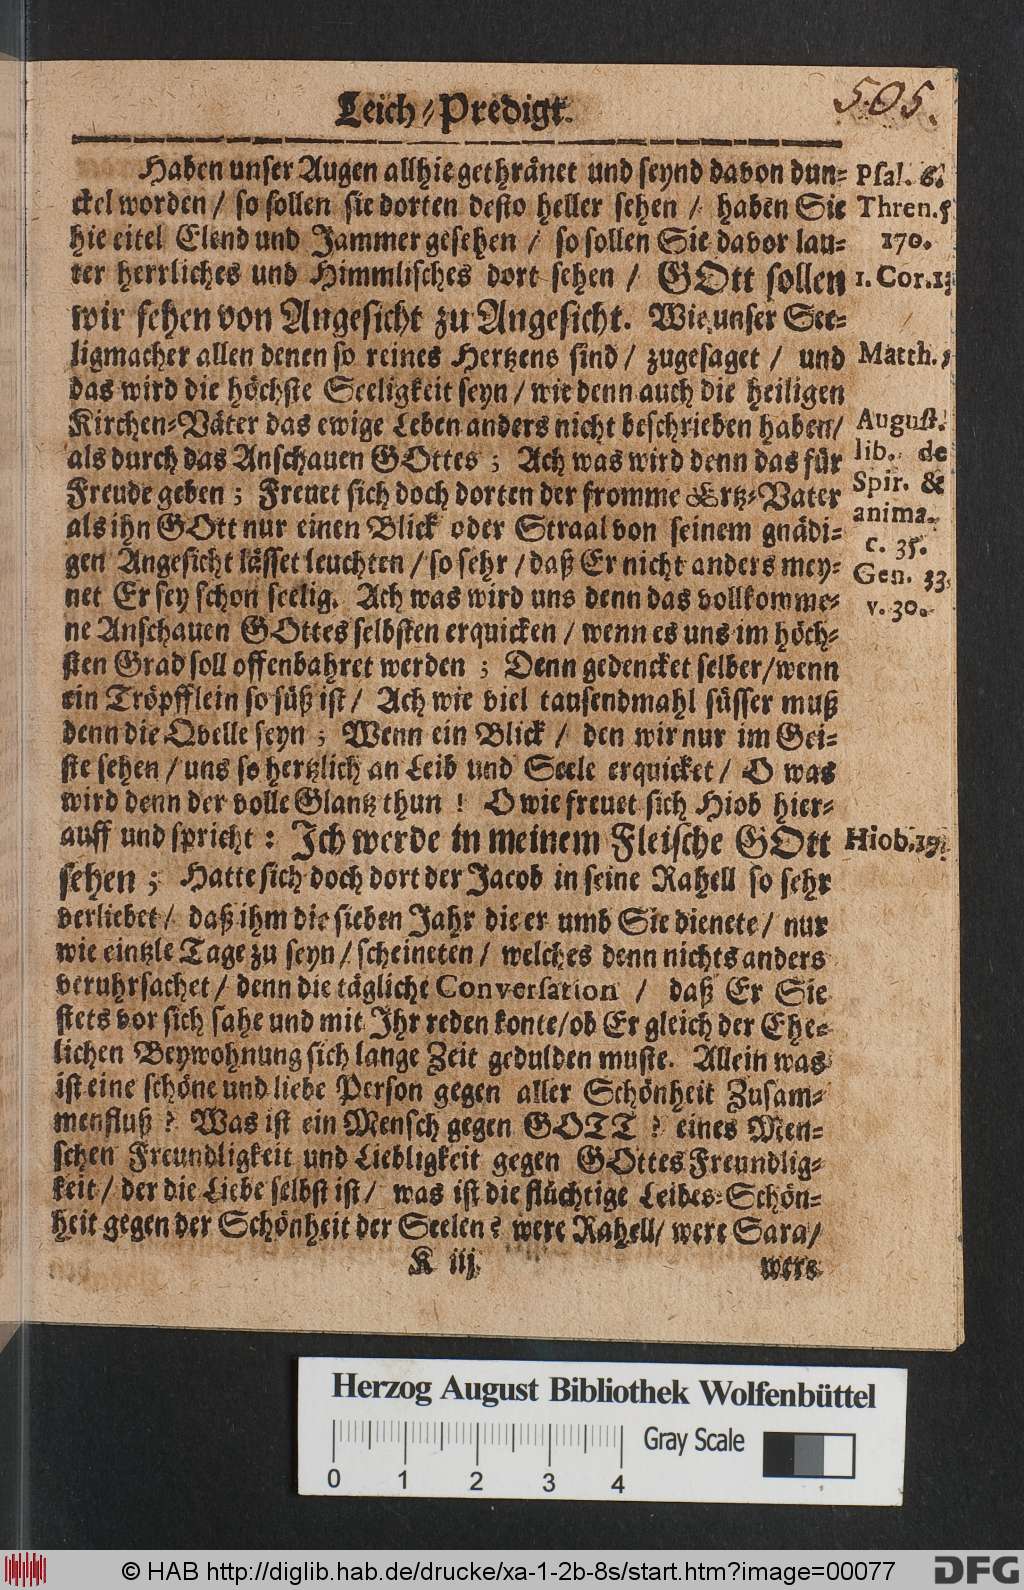 Leich-Predigt.
505.
Haben unser Augen allhie gethränet und seynd davon dun-
ckel worden / so sollen sie dorten desto heller sehen / haben Sie
hie eitel Elend und Jammer gesehen / so sollen Sie davor lau-
ter herrliches und Himmlisches dort sehen / GOtt sollen
wir sehen von Angesicht zu Angesicht. Wie unser See-
ligmacher allen denen so reines Hertzens sind / zugesaget / und
das wird die höchste Seeligkeit seyn / wie denn auch die heiligen
Kirchen-Väter das ewige Leben anders nicht beschrieben haben/
als durch das Anschauen GOttes ; Ach was wird denn das für
Freude geben ; Freuet sich doch dorten der fromme Ertz-Vater
als ihn GOtt nur einen Blick oder Straal von seinem gnädi-
gen Angesicht lässet leuchten / so sehr / daß Er nicht anders mey-
net Er sey schon seelig. Ach was wird uns denn das vollkomme-
ne Anschauen GOttes selbsten erquicken / wenn es uns im höch-
sten Grad soll offenbahret werden ; Denn gedencket selber / wenn
ein Tröpfflein so süß ist / Ach wie viel tausendmahl süsser muß
denn die Qvelle seyn ; Wenn ein Blick / den wir nur im Gei-
ste sehen / uns so hertzlich an Leib und Seele erquicket / O was
wird denn der volle Glantz thun ! O wie freuet sich Hiob hier-
auff und spricht : Ich werde in meinem Fleische GOtt
sehen ; Hatte sich doch dort der Jacob in seine Rahell so sehr
verliebet / daß ihm die sieben Jahr die er umb Sie dienete / nur
wie eintzle Tage zu seyn / scheineten / welches denn nichts anders
veruhrsachet / denn die tägliche Conversation / daß Er Sie
stets vor sich sahe und mit Ihr reden konte / ob Er gleich der Ehe-
lichen Beywohnung sich lange Zeit gedulden muste. Allein was
ist eine schöne und liebe Person gegen aller Schönheit Zusam-
menfluß ? Was ist ein Mensch gegen GOTT ? eines Men-
schen Freundligkeit und Liebligkeit gegen GOttes Freundlig-
keit / der die Liebe selbst ist / was ist die flüchtige Leibes-Schön-
heit gegen der Schönheit der Seelen ? were Rahell / were Sara /
K iij
were
Psal. 6.
Thren. 5
170.
1. Cor. 13
Matth. 5
August.
lib. de
Spir. &
anima.
c. 35.
Gen. 33.
v. 30.
Hiob. 19.
Herzog August Bibliothek Wolfenbüttel
0 1 2 3 4
Gray Scale
© HAB http://diglib.hab.de/drucke/xa-1-2b-8s/start.htm?image=00077
DFG